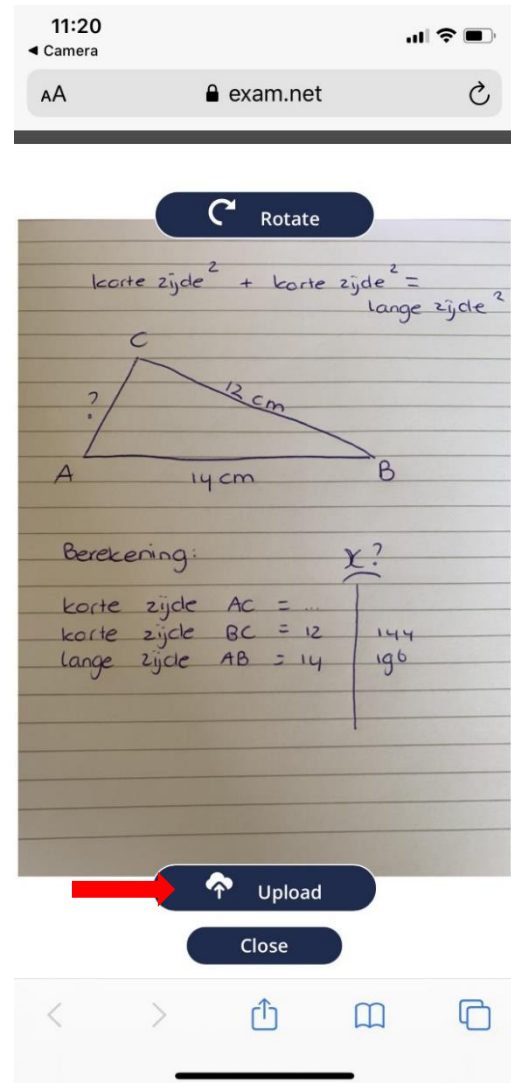 11:20
◀ Camera
AA exam.net
Rotate
korte zijde² + korte zijde² =
lange zijde²
C
? 12 cm
A 14 cm B
Berekening: x?
korte zijde AC = ...
korte zijde BC = 12 144
lange zijde AB = 14 196
Upload
Close